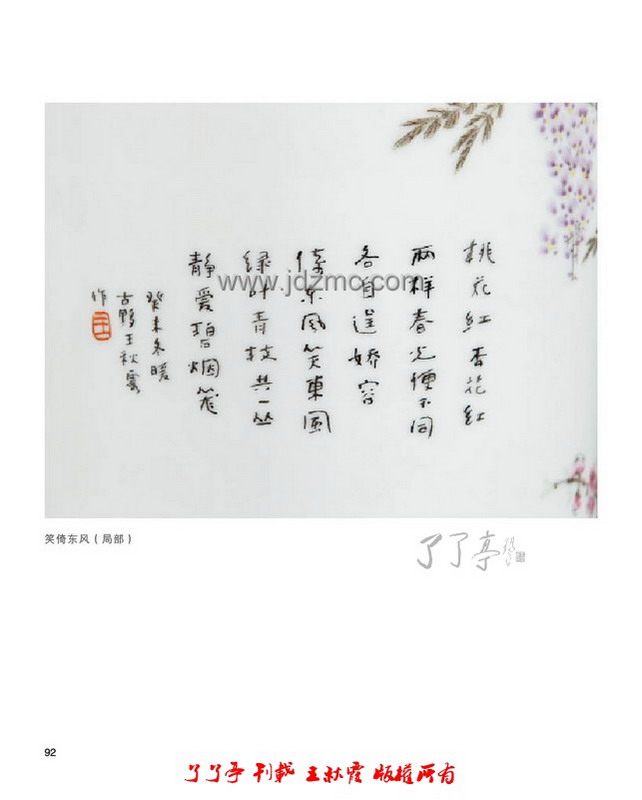 桃花紅杏花紅
兩样春光便不同
各自逞娇容
倚东风笑東風
绿叶青枝共一丛
静爱碧烟笼
癸未冬暖
古黟王秋霞
作
www.jdzmc.com
笑倚东风(局部)
了了亭
92
了了亭 刊载 王秋霞 版權所有